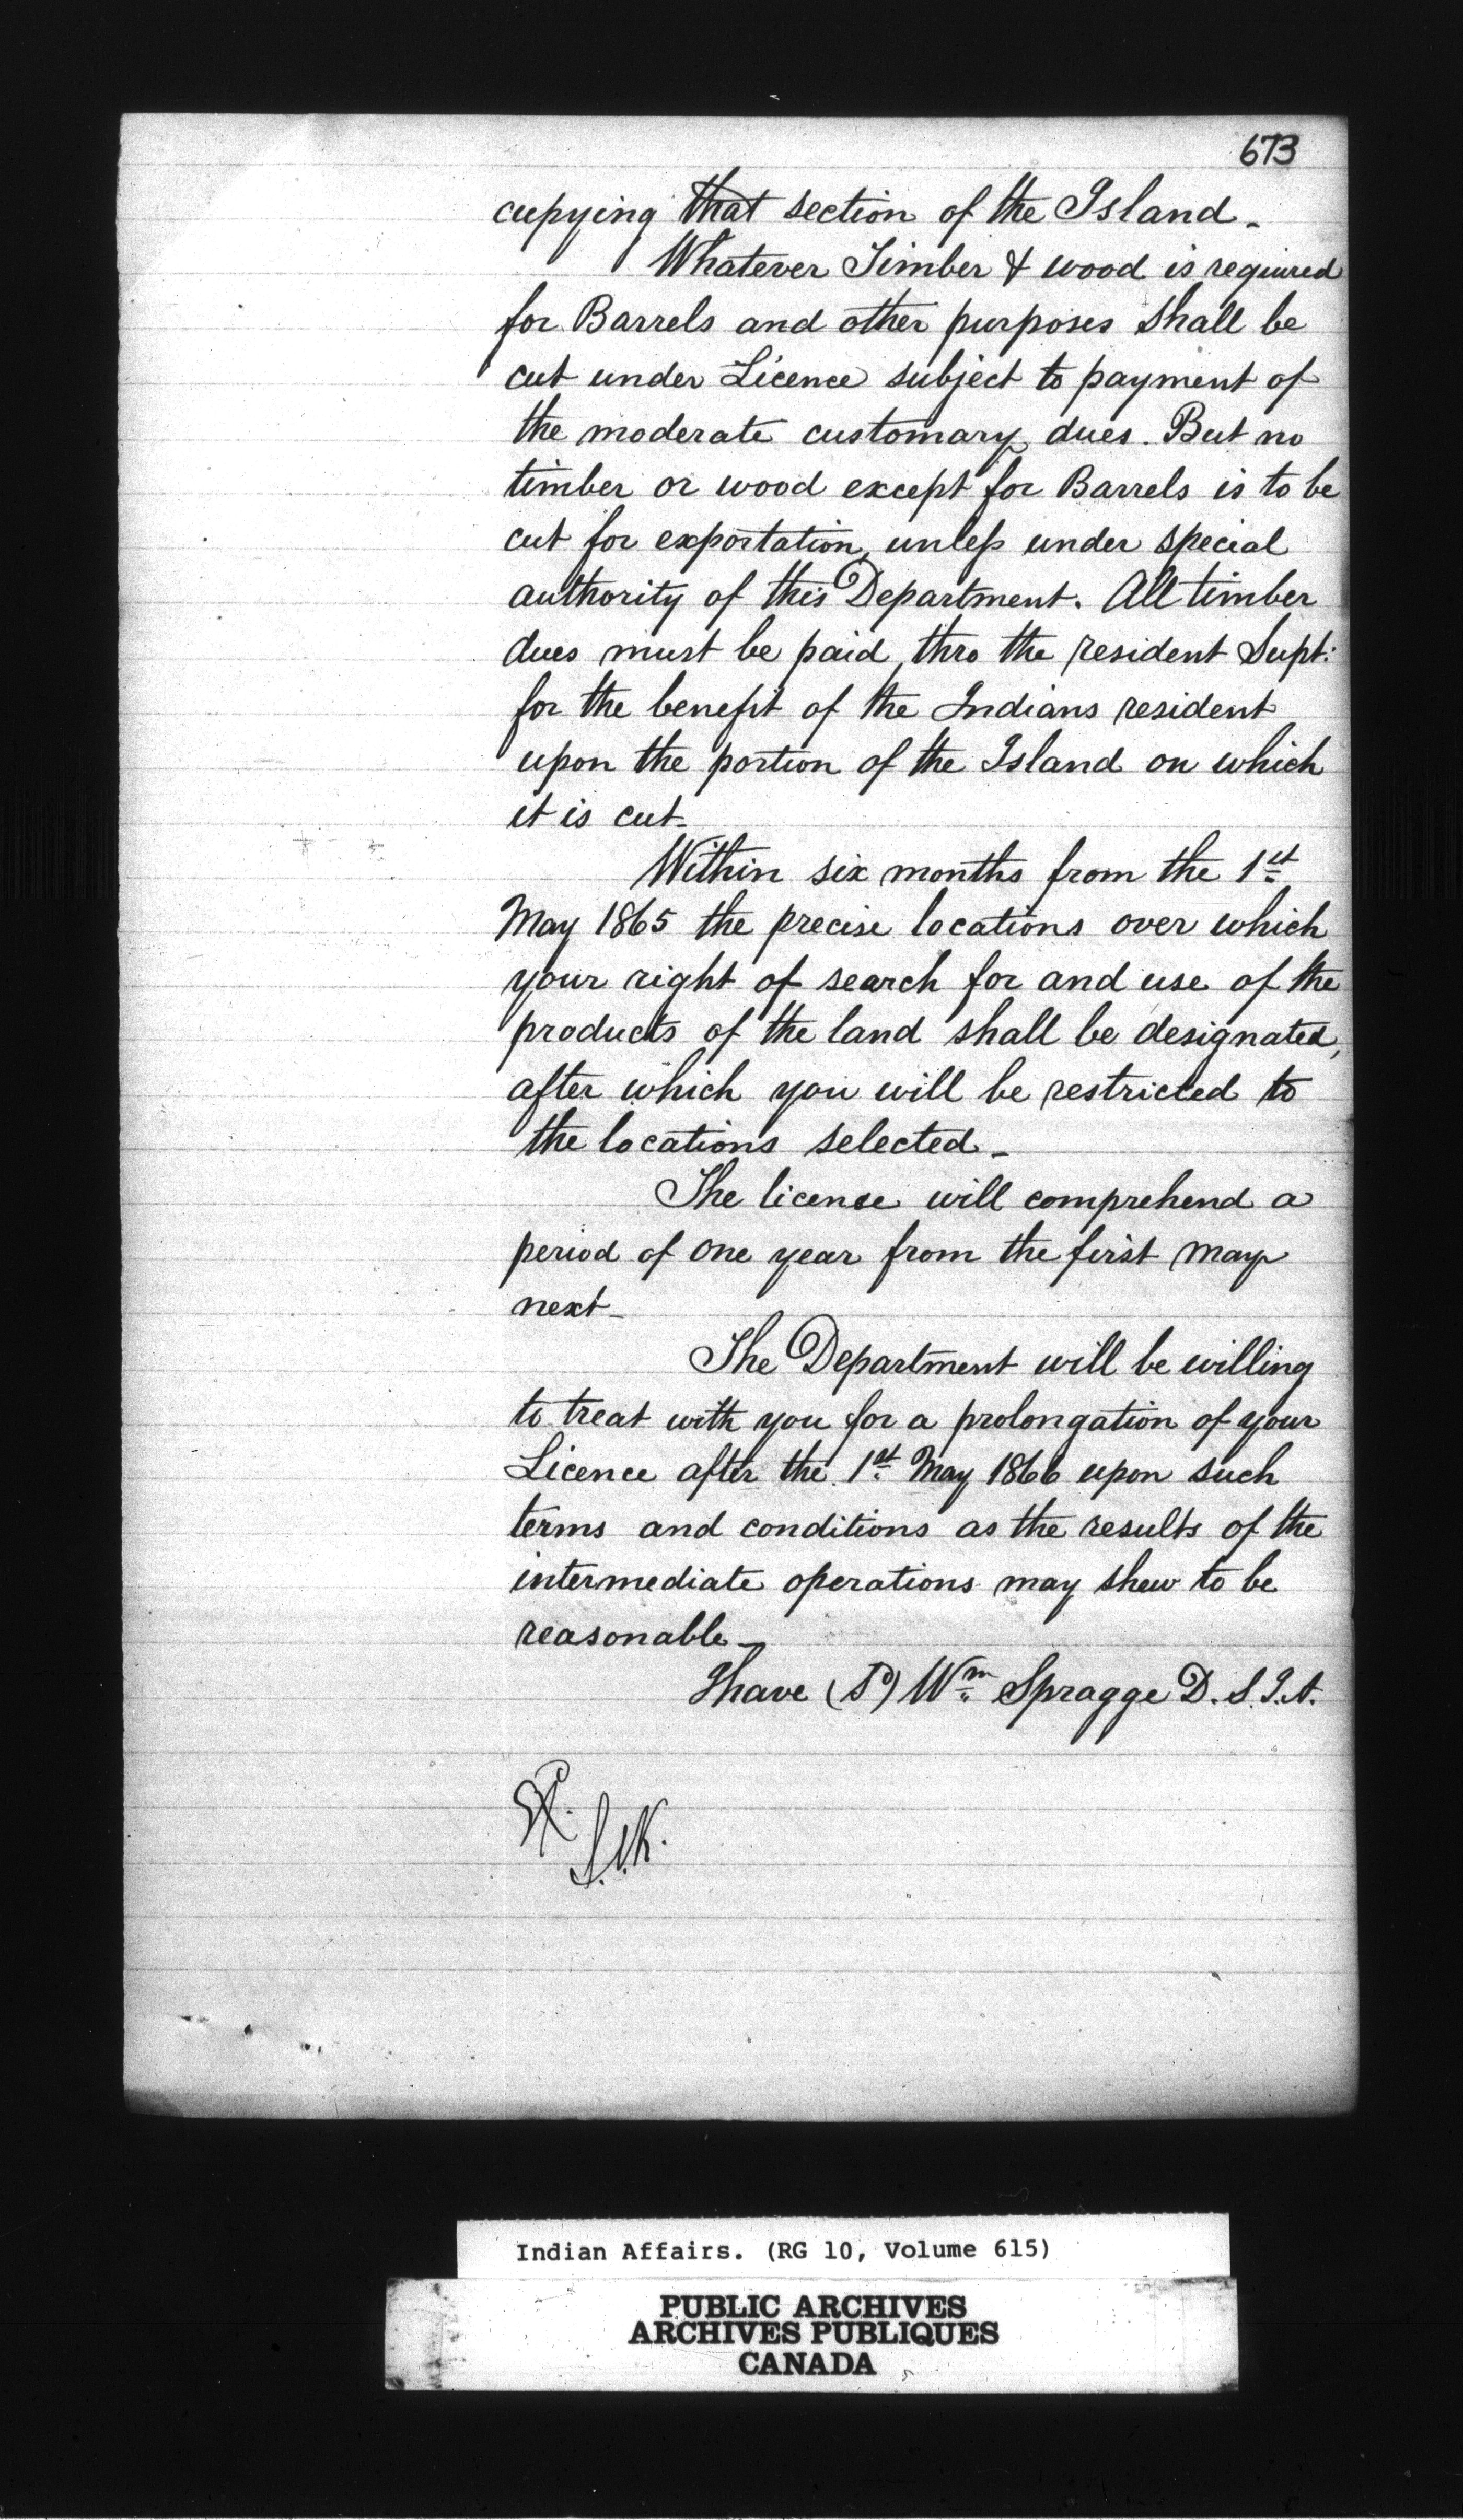 673
cupying that section of the Island_
Whatever Timber & wood is required
for Barrels and other purposes shall be
cut under Licence subject to payment of
the moderate customary dues. But no
timber or wood except for Barrels is to be
cut for exportation, unless under special
authority of this Department. All timber
dues must be paid, thro the resident Supt:
for the benefit of the Indians resident
upon the portion of the Island on which
it is cut_
Within six months from the 1st
May 1865 the precise locations over which
your right of search for and use of the
products of the land shall be designated,
after which you will be restricted to
the locations selected_
The license will comprehend a
period of one year from the first may
next_
The Department will be willing
to treat with you for a prolongation of your
Licence after the 1st May 1866 upon such
terms and conditions as the results of the
intermediate operations may shew to be
reasonable_
I have (Sd) Wm Spragge D.S.I.A.
Indian Affairs. (RG 10, Volume 615)
PUBLIC ARCHIVES
ARCHIVES PUBLIQUES
CANADA